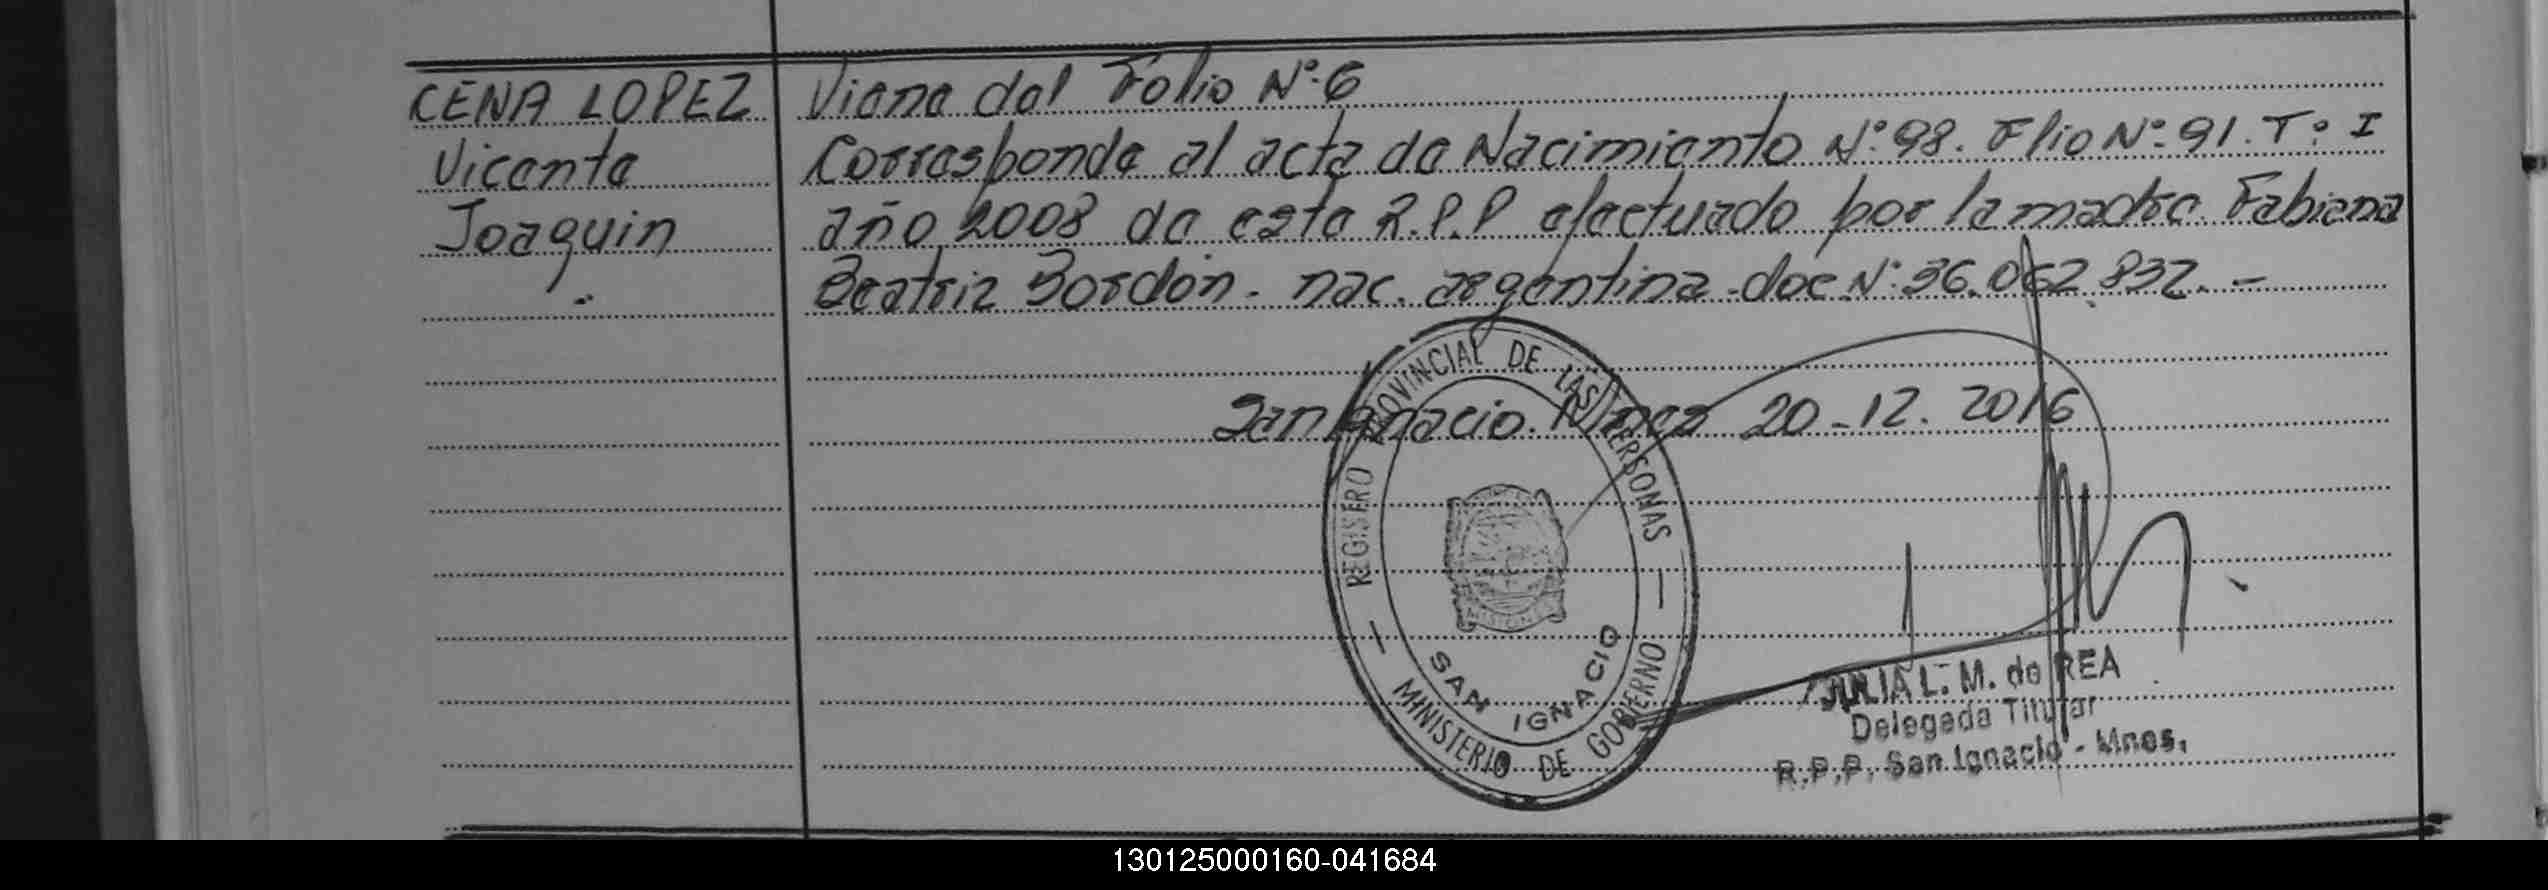 CENA LOPEZ
Vicente
Joaquin
Viene del Folio N°6
Corresponde al acta de Nacimiento N°98. Flio N°:91. T°I
año 2008 de esta R.P.P efectuado por la madre Fabiana
Beatriz Bordón. nac. argentina doc N°:36.062.832.-
San Ignacio. Mnes 20-12.2016
REGISTRO PROVINCIAL DE LAS PERSONAS
MINISTERIO DE GOBIERNO
SAN IGNACIO
MISIONES
JULIA L. M. de REA
Delegada Titular
R.P.P. San Ignacio - Mnes.
130125000160-041684